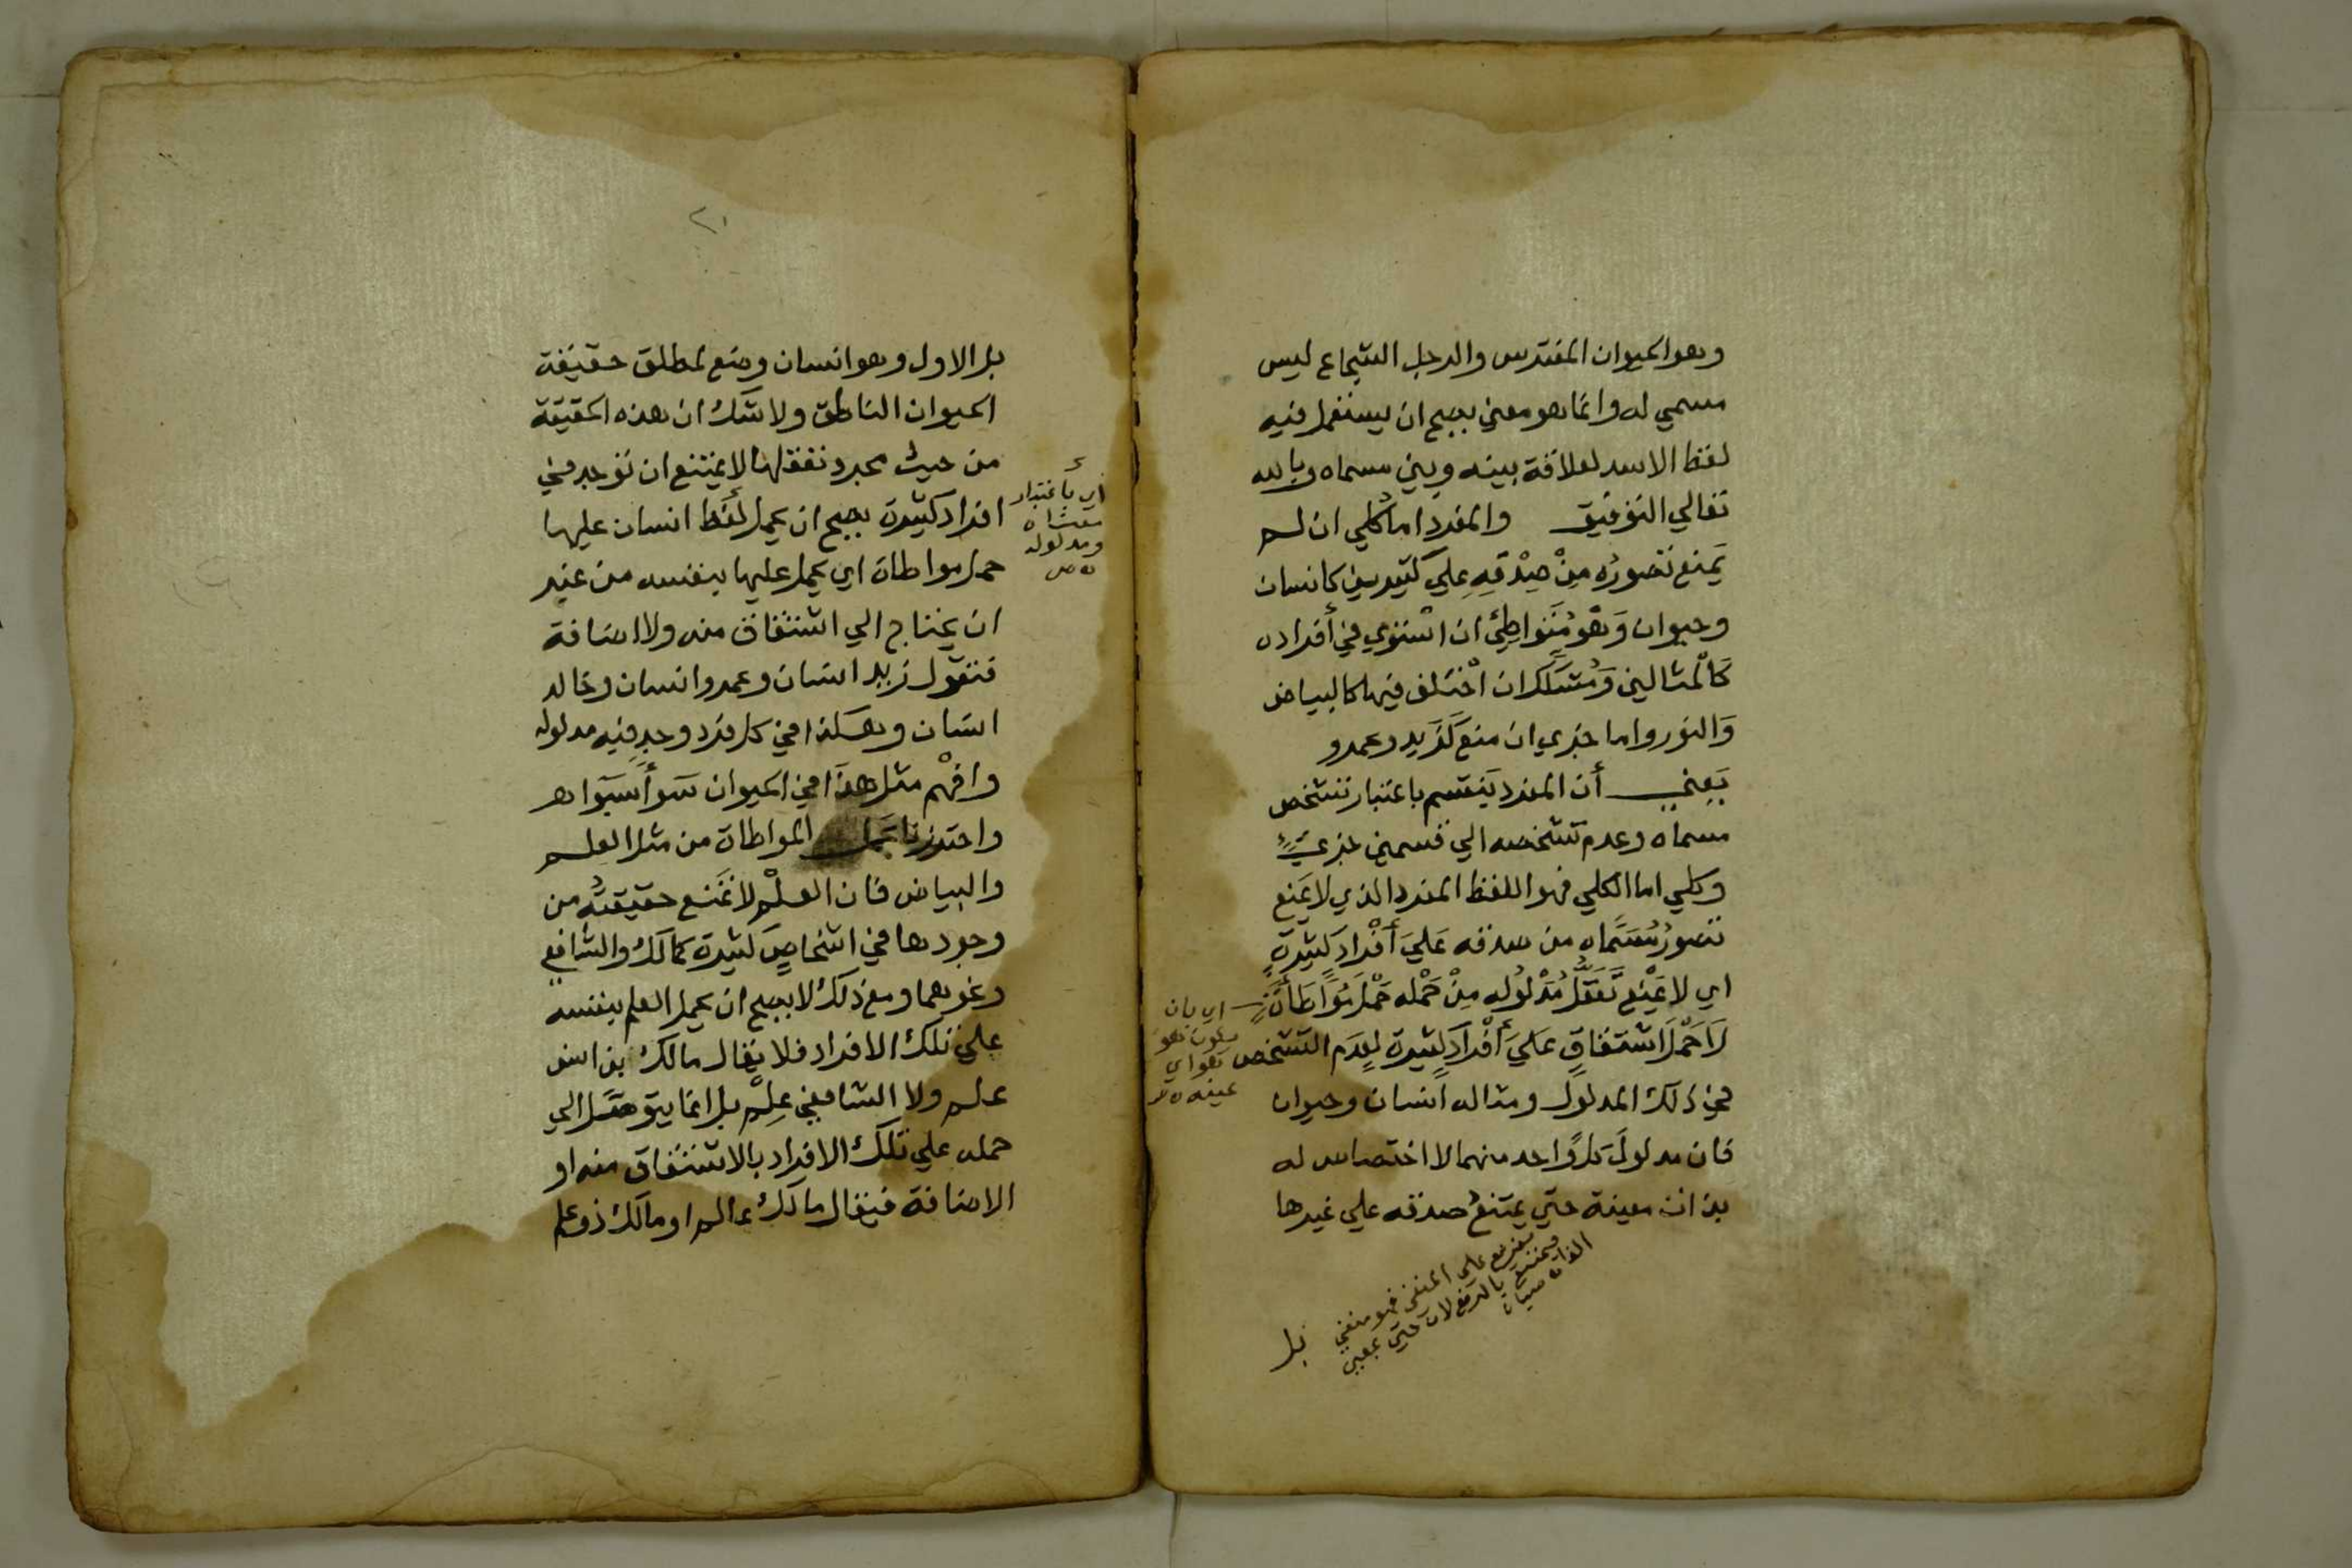 وهو الحيوان المفترس والرجل الشجاع ليس
مسمي له وانما هو معني يصح ان يستعمل فيه
لفظ الاسد لعلاقة بينه وبين مسماه وبالله
تعالي التوفيق والمفرد اما كلي ان لم
يَمنع تصورُه مِنْ صِدْقِهِ عليَ كثيرين كانسان
وحيوان وَهْوَ مُتَواطِئ ان اسْتوي في أفراده
كَالْمثالين وَمُشَكك ان اخْتلف فيها كالبياض
وَالنور واما جزءي ان منع كَزَيد وعمرو
يَعني أن المفرد يَنقسم باعتبار تشخص
مسماه وعدم تشخصه الي قسمين جزءيٍّ
وكلي اما الكلي فهو اللفظ المفرد الذي لا يَمنع
تصورُ مُسَمَّاه من صدقه عَليَ أَفْرادٍ كَثِيرَةٍ
اي لا يَمْنع تَعَقُّلُ مَدْلُولِه مِنْ حَمْله حَمْلَ مُوَاطَأَةٍ
لَا حَمْلَ اشتقاقٍ عَليَ أَفْرادٍ كَثيرة لِعدَم التشخص
في ذلك المدلول ومثاله انسان وحيوان
فان مدلولَ كلِّ واحد منهما لا اختصاص له
بذات معينة حتي يمتنعُ صدقه علي غيرها
اي بان
يكون هو
هو اي
عينه
تفريع علي المنفي فهو منفي
فيمتنع بالرفع لان حتي بمعني
الفاء
بل
٢١
بل الاول وهو انسان وضع لمطلق حقيقة
الحيوان الناطق ولا شك ان هذه الحقيقة
من حيث مجرد تعقلها لا يمتنع ان توجد في
افراد كثيرة يصح ان يحمل لفظ انسان عليها
حمل مواطاة اي يحمل عليها بنفسه من غير
ان يحتاج الي اشتقاق منه ولا اضافة
فتقول زيد انسان وعمرو انسان وخالد
انسان وهكذا في كل فرد وجد فيه مدلوله
وافْهم مثل هذا في الحيوان سَواءً سَواء
واحترزنا بحمل المواطاة من مثل العلم
والبياض فان العلْم لا تمَنع حقيقتُه من
وجودها في اشخاصٍ كثيرة كمالك والشافعي
ونحوهما ومع ذلك لا يصح ان يحمل العلم بنفسه
علي تلك الافراد فلا يقال مالك بن انس
علم ولا الشافعي عِلْم بل انما يتوصل الي
حمله علي تلك الافراد بالاشتقاق منه او
الاضافة فيقال مالك عالم او مالك ذو علم
أي باعتبار
معناه
ومدلوله